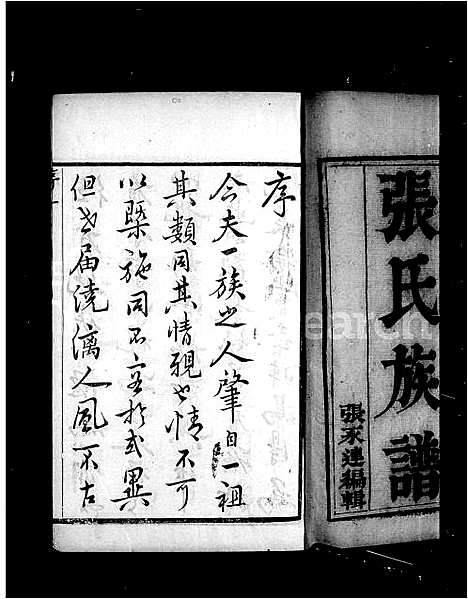 張氏族譜
張承連編輯
序
今夫一族之人肇自一祖
其類同其情親也情不可
以槩施同不宜於或異
但世届澆漓人風不古